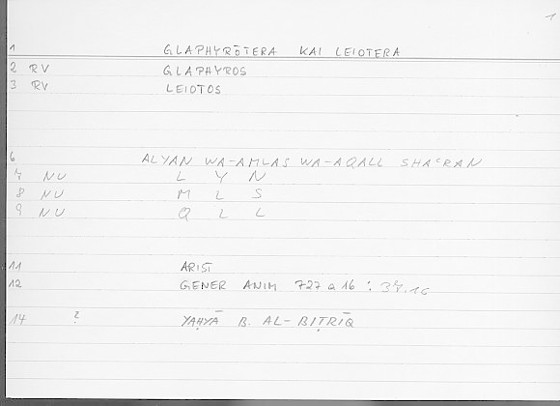 1
1 GLAPHYRŌTERA KAI LEIOTERA
2 RV GLAPHYROS
3 RV LEIOTOS
6 ALYAN WA-AMLAS WA-AQALL SHAʿRAN
7 NU L Y N
8 NU M L S
9 NU Q L L
11 ARIST
12 GENER ANIM 727 a 16 : 37.16
14 ? YAḤYĀ B. AL-BIṬRĪQ